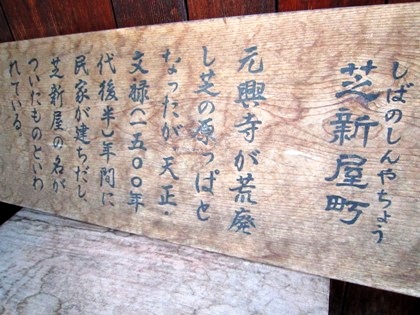 しばのしんやちょう
芝新屋町
元興寺が荒廃
し芝の原っぱと
なったが、天正・
文禄(一五〇〇年
代後半)年間に
民家が建ちだし、
芝新屋の名が
ついたものといわ
れている。